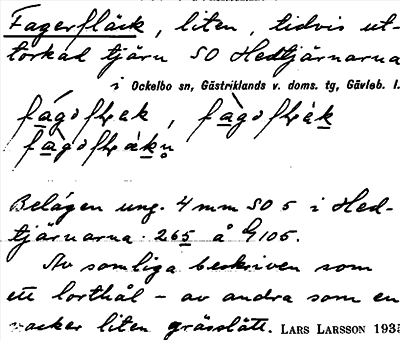 Fagerfläck, liten, tidvis ut-
torkad tjärn SO Hedtjärnarna
i Ockelbo sn, Gästriklands v. doms. tg, Gävleb. l.
Belägen ung. 4 mm SO 5 i Hed-
tjärnarna. 265 å G 105.
Av somliga beskriven som
ett lorthål – av andra som en
vacker liten grässlätt. LARS LARSSON 1935